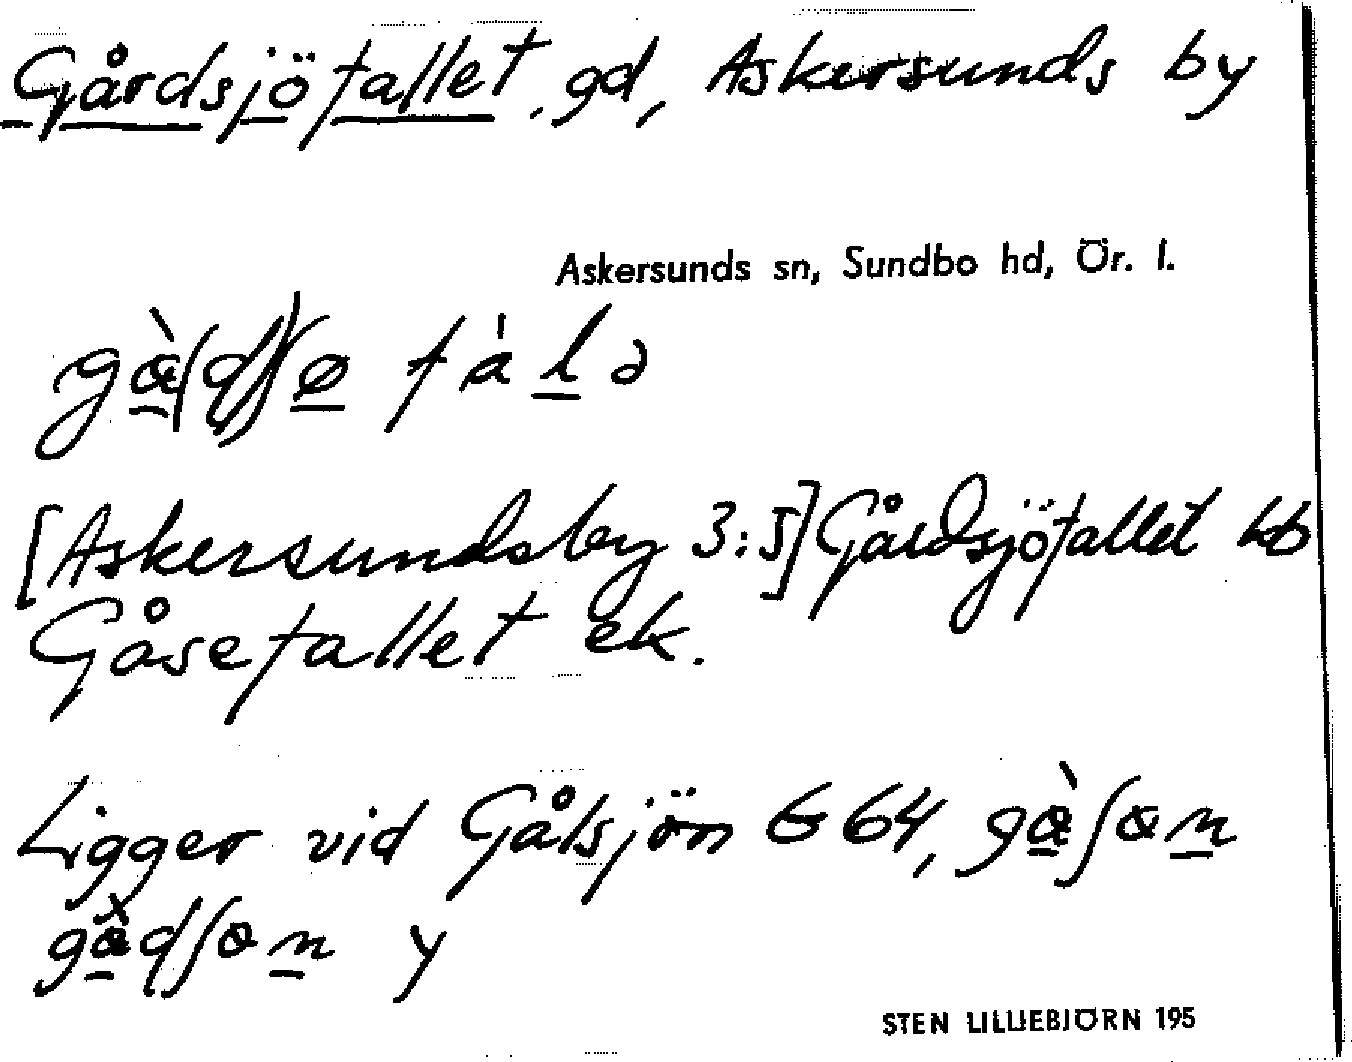 Gårdsjötallet, gd, Askersunds by
Askersunds sn, Sundbo hd, Ör. l.
[Askersundsby 3:5] Gårdsjötallet kb
Gåsetallet ek.
Ligger vid Gålsjön G 64,
y
STEN LILLIEBJÖRN 195